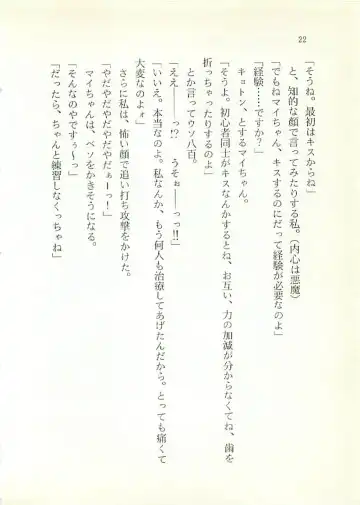 22
「そうね。最初はキスからね」
と、知的な顔で言ってみたりする私。（内心は悪魔）
「でもねマイちゃん、キスするのにだって経験が必要なのよ」
「経験……ですか？」
キョトン、とするマイちゃん。
「そうよ。初心者同士がキスなんかするとね、お互い、力の加減が分からなくてね、歯を
折っちゃったりするのよ」
とか言ってウソ八百。
「ええ――っ!?　うそぉ――っっ!!」
「いいえ。本当なのよ。私なんか、もう何人も治療してあげたんだから。とっても痛くて
大変なのよォ」
さらに私は、怖い顔で追い打ち攻撃をかけた。
「やだやだやだやだやだぁーっ！」
マイちゃんは、ベソをかきそうになる。
「そんなのやですぅ〜っ」
「だったら、ちゃんと練習しなくっちゃね」